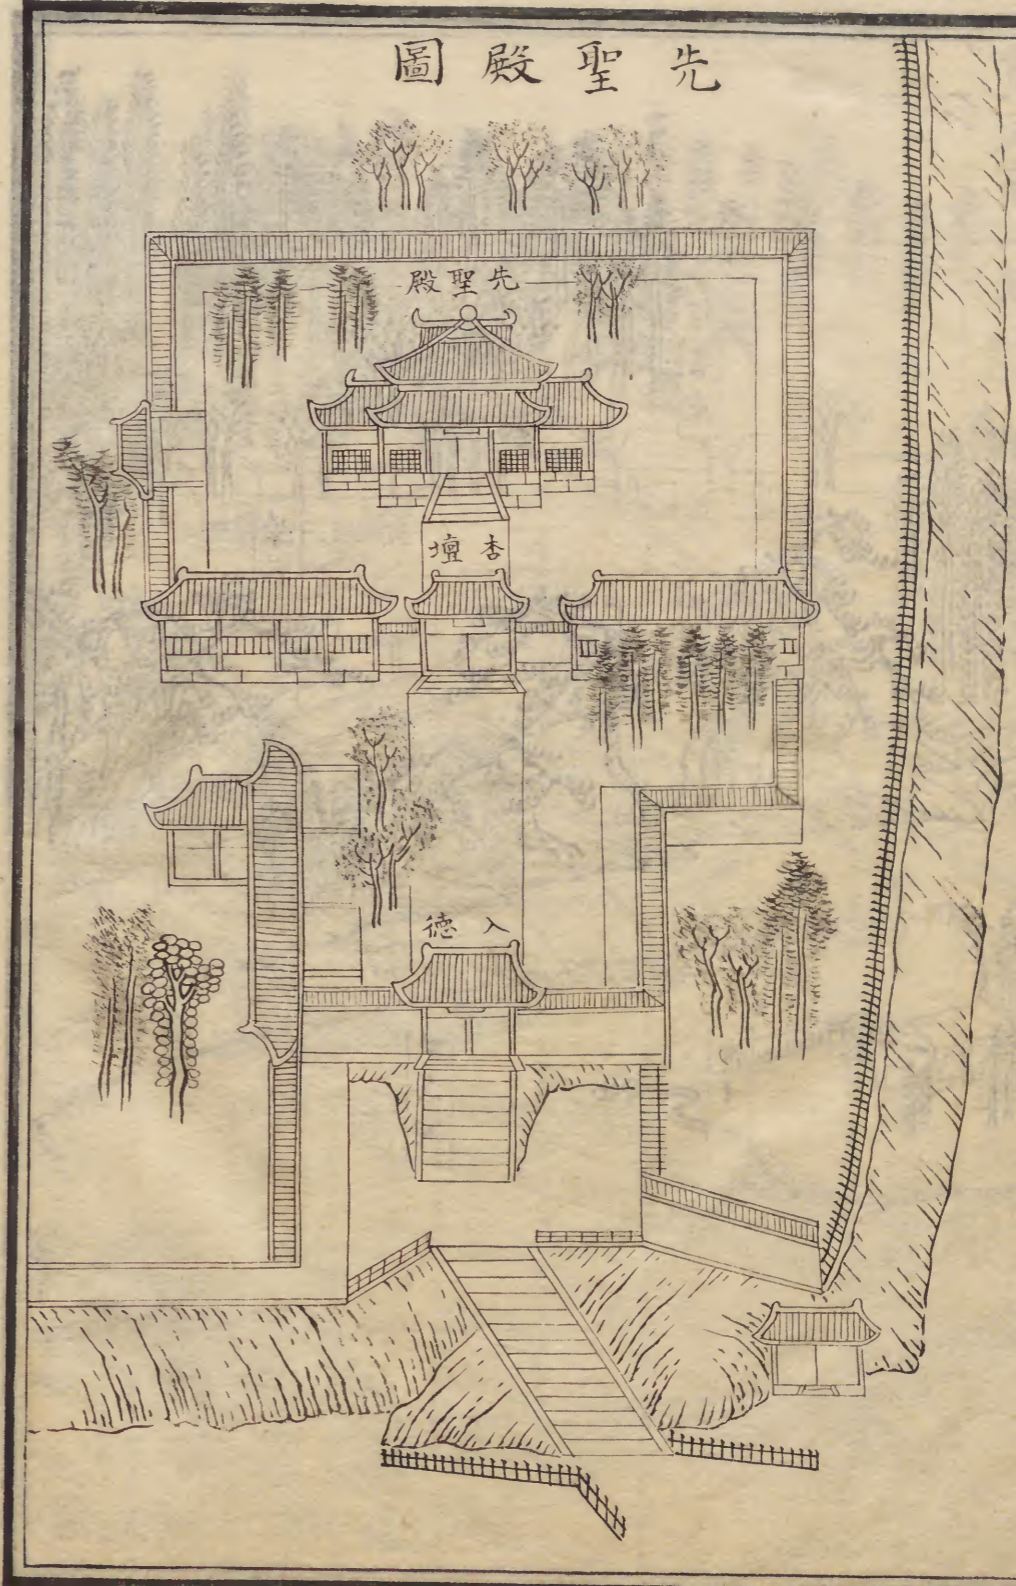 先聖殿圖
先聖殿
杏壇
入德